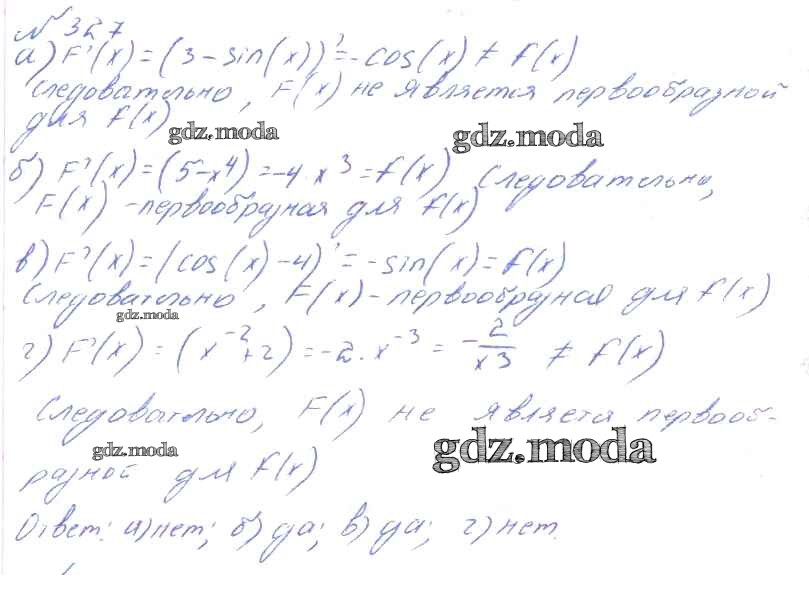 № 327
а) F'(x) = (3 - sin(x))' = - cos(x) ≠ f(x)
Следовательно, F(x) не является первообразной
для f(x)
gdz.moda gdz.moda
б) F'(x) = (5-x⁴) = -4·x³ = f(x) Следовательно,
F(x) - первообразная для f(x)
в) F'(x) = (cos(x) - 4)' = -sin(x) = f(x)
Следовательно, F(x) - первообразная для f(x)
gdz.moda
г) F'(x) = (x⁻² + 2) = -2·x⁻³ = -2/x3 ≠ f(x)
Следовательно, F(x) не является первооб-
gdz.moda gdz.moda
разной для f(x)
Ответ: а) нет; б) да; в) да; г) нет.